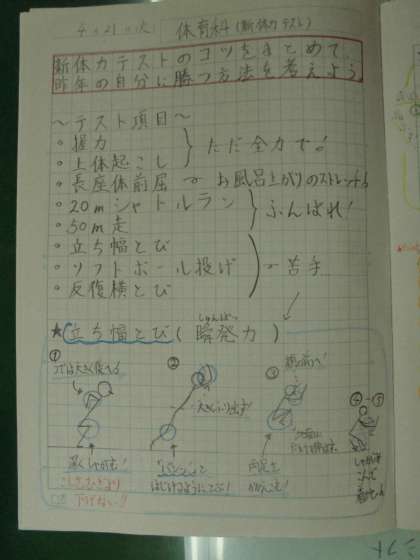 4月21日(火) 体育科(新体力テスト)
新体力テストのコツをまとめて、
昨年の自分に勝つ方法を考えよう
〜テスト項目〜
・握力
・上体起こし
ただ全力で!
・長座体前屈 〜 お風呂上がりのストレッチ
・20mシャトルラン
・50m走
ふんばれ!
・立ち幅とび
・ソフトボール投げ
・反復横とび
〜苦手
しゅんぱつ
★立ち幅とび(瞬発力)
① ② ③ ④-⑤
うでは大きく使う
大きくふり出す!
深くしゃがむ!
はじけるようにとぶ!
下げない!!